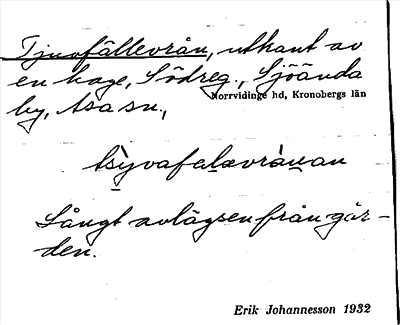 Tjuvfällevrån, utkant av
en hage, Södreg., Sjöända
by, Asa sn.,
Norrvidinge hd, Kronobergs län
Långt avlägsen från går-
den.
Erik Johannesson 1932